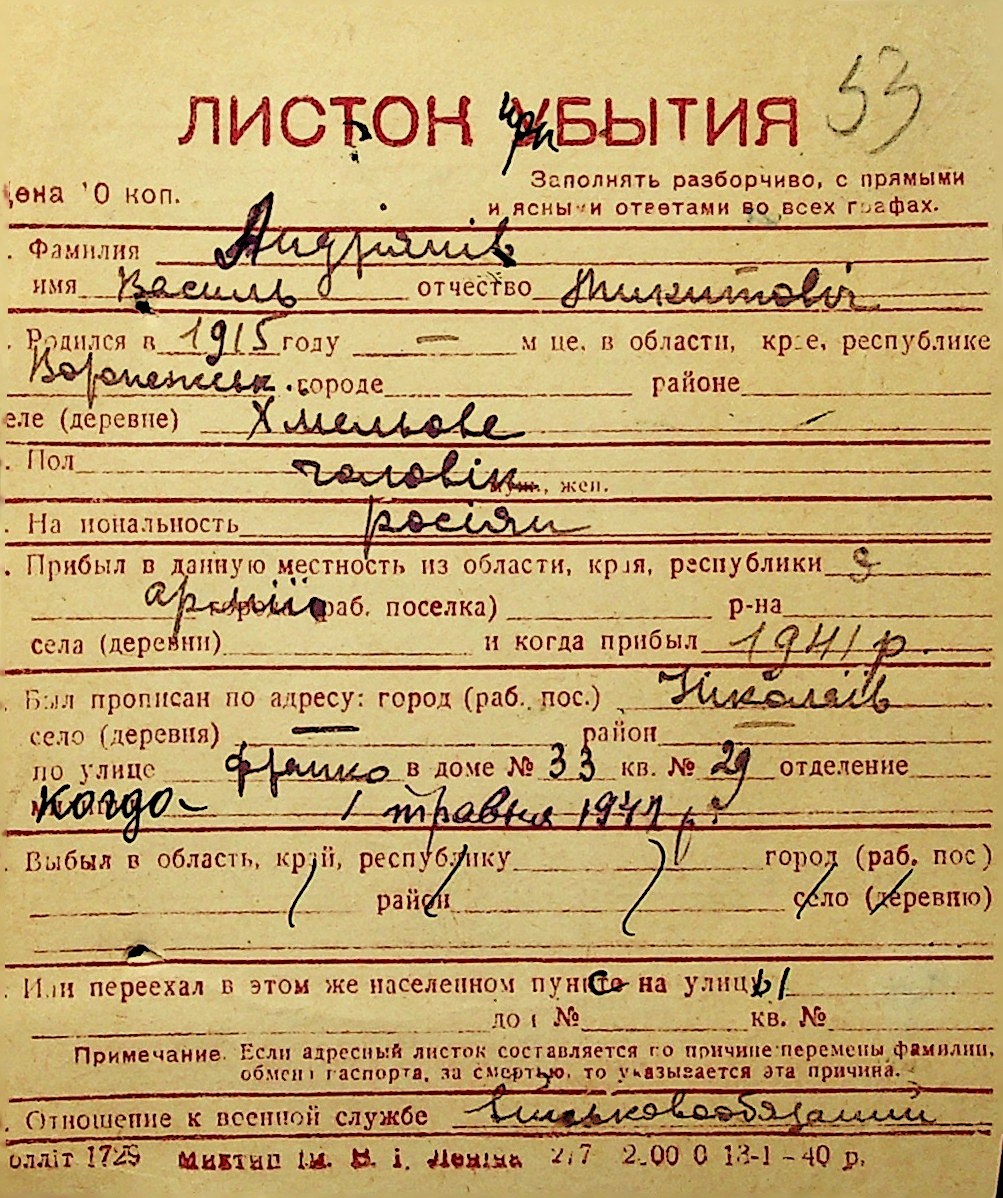 53
ЛИСТОК прибытия
Цена 10 коп.
Заполнять разборчиво, с прямыми
и ясными ответами во всех графах.
Фамилия Андріянів
имя Василь отчество Микитовіч
Родился в 1915 году — м-це, в области, крае, республике
Воронежськ. городе районе
селе (деревне) Хмельове
Пол чоловік муж., жен.
Национальность росіян
Прибыл в данную местность из области, края, республики з
армії города (раб. поселка) р-на
села (деревни) и когда прибыл 1941 р.
Был прописан по адресу: город (раб. пос.) Ніколаів
село (деревня) — район —
по улице Франко в доме № 33 кв. № 29 отделение
когдо 1 травня 1941 р.
Выбыл в область, край, республику город (раб. пос)
район село (деревню)
Или переехал в этом же населенном пункте с на улицы
дом № кв. №
Примечание. Если адресный листок составляется по причине перемены фамилии,
обмена паспорта, за смертью, то указывается эта причина.
Отношение к военной службе Військовообязаний
олліт 1729 Миктип ім. В. І. Леніна 277 13-1-40 р.